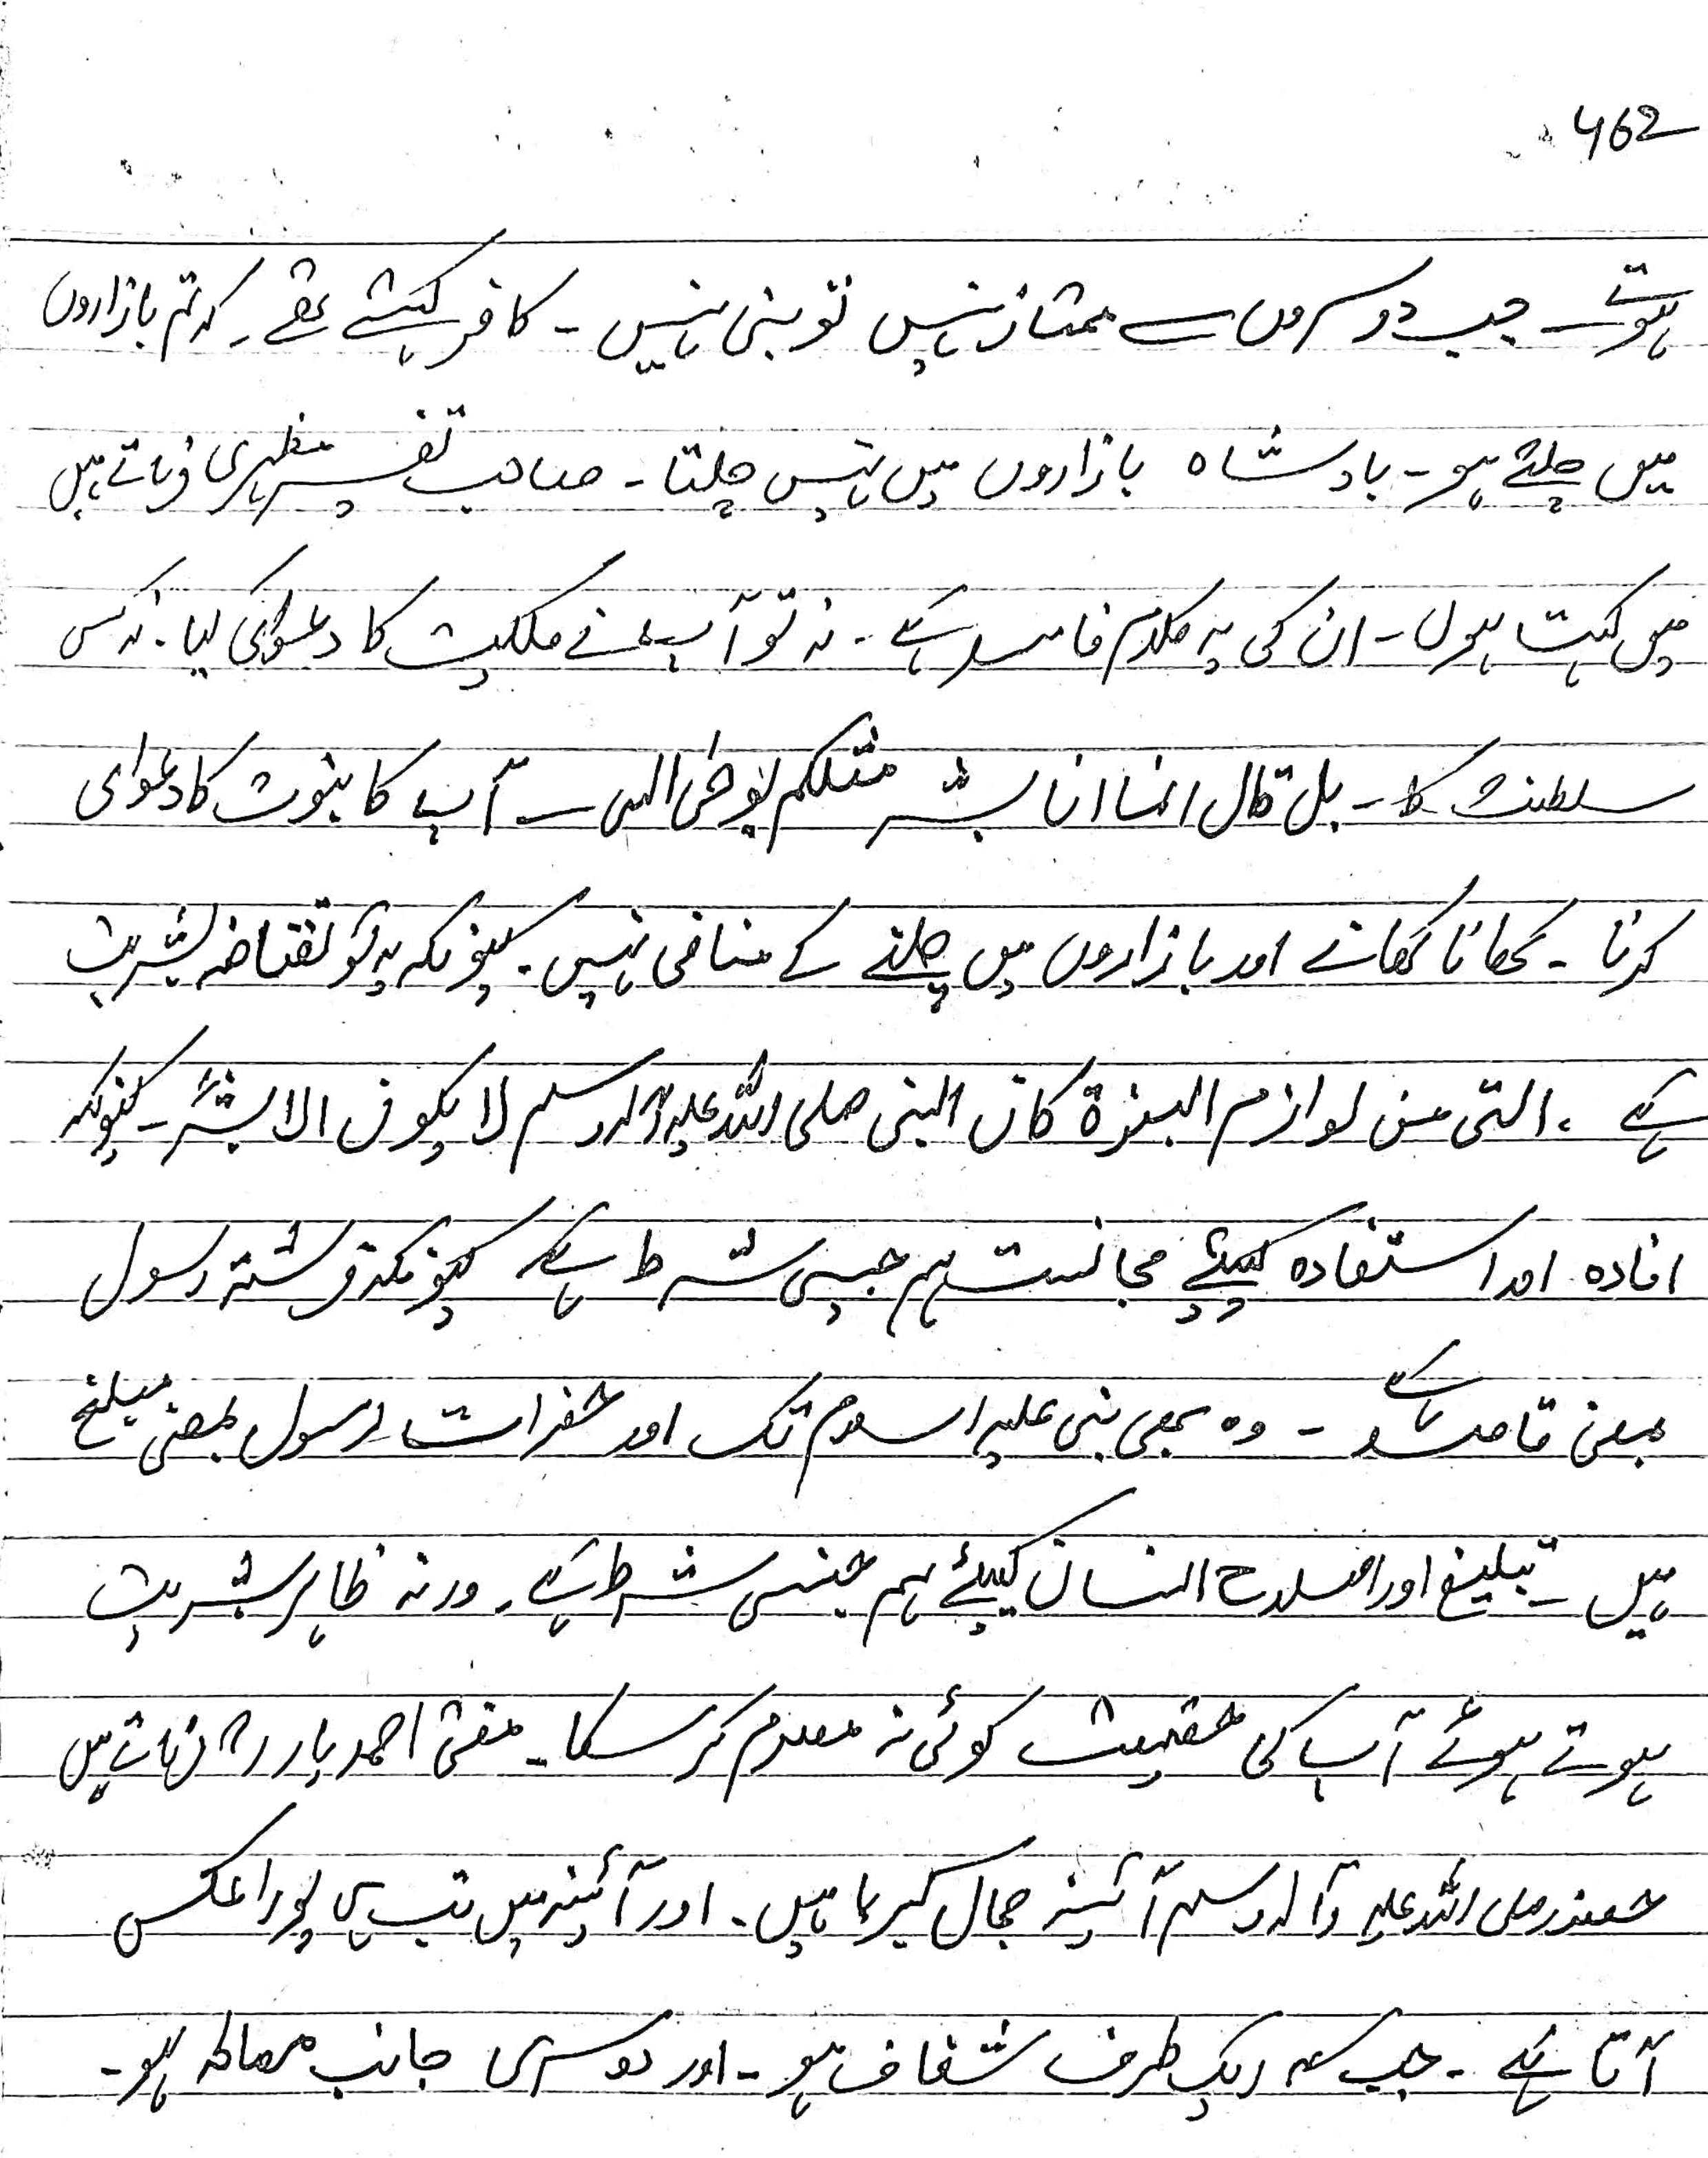 462
ہوتے۔ جب دوسروں سے ممتاز نہیں تو نبی نہیں۔ کافر کہتے تھے۔ کہ تم بازاروں
میں چلتے ہو۔ بادشاہ بازاروں میں نہیں چلتا۔ صاحب تفسیر مظہری فرماتے ہیں
میں کہتا ہوں۔ ان کی یہ کلام فاسد ہے۔ نہ تو آپ نے ملکیت کا دعوٰی کیا۔ نہ کسی
سلطنت کا۔ بل قال انما انا بشر مثلکم یوحٰی الی۔ آپ کا نبوت کا دعوای
کرنا۔ کھانا کھانے اور بازاروں میں چلنے کے منافی نہیں۔ کیونکہ یہ تو تقتاضہ بشریت
ہے۔ التی من لوازم النبوۃ کان النبی صلی اللہ علیہ وآلہ وسلم لا یکون الا بشر۔ کیونکہ
افادہ اور استفادہ کیلئے مجانست ہم جنسی شرط ہے۔ کیونکہ فرشتہ رسول
بمعنی قاصد ہے۔ وہ بھی نبی علیہ اسلام تک اور حضرات رسول بمعنی مبلغ
ہیں۔ تبلیغ اور اصلاح انسان کیلئے ہم جنسی شرط ہے۔ ورنہ ظاہر بشریت
ہوتے ہوئے آپ کی حقیقت کوئی نہ معلوم کر سکا۔ مفتی احمد یار رح فرماتے ہیں
حضور صلی اللہ علیہ وآلہ وسلم آئینہ جمال کبریا ہیں۔ اور آئینہ میں تب ہی پورا عکس
آتا ہے۔ جب کہ ایک طرف شفاف ہو۔ اور دوسری جانب مصالہ ہو۔